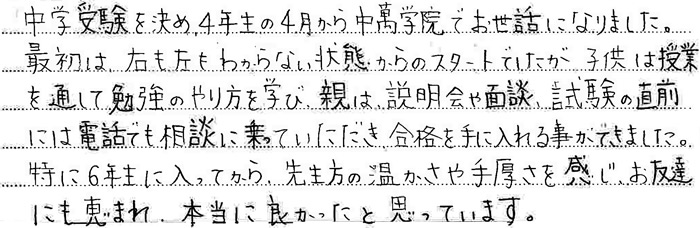 中学受験を決め、4年生の4月から中萬学院でお世話になりました。
最初は、右も左もわからない状態からのスタートでしたが、子供は授業
を通して勉強のやり方を学び、親は、説明会や面談、試験の直前
には電話でも相談に乗っていただき、合格を手に入れる事ができました。
特に6年生に入ってから、先生方の温かさや手厚さを感じ、お友達
にも恵まれ、本当に良かったと思っています。